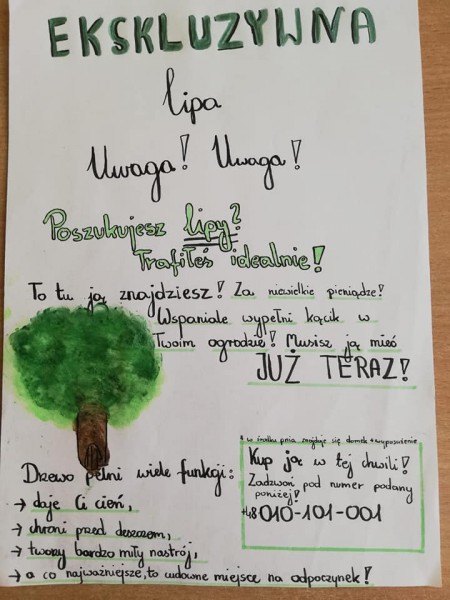 EKSKLUZYWNA
lipa
Uwaga! Uwaga!
Poszukujesz lipy?
Trafiłeś idealnie!
To tu ją znajdziesz! Za niewielkie pieniądze!
Wspaniale wypełni kącik w
Twoim ogrodzie! Musisz ją mieć
JUŻ TERAZ!
w środku pnia znajduje się domek + wyposażenie
Kup ją w tej chwili!
Zadzwoń pod numer podany
poniżej!
+48 010-101-001
Drzewo pełni wiele funkcji:
→ daje Ci cień,
→ chroni przed deszczem,
→ tworzy bardzo miły nastrój,
→ a co najważniejsze, to cudowne miejsce na odpoczynek!